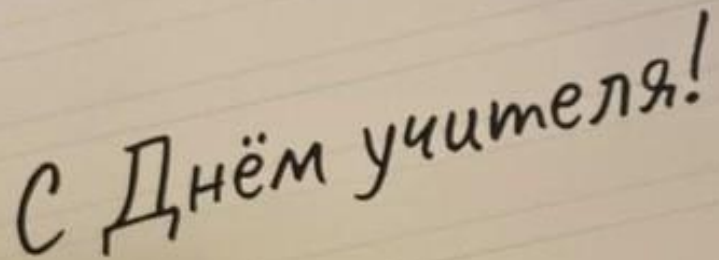 С Днём учителя!